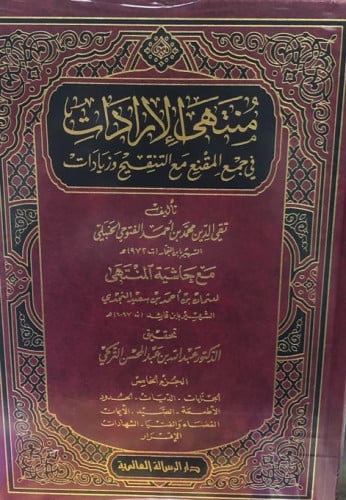 منتهى الإرادات
في جمع المقنع مع التنقيح وزيادات
تأليف
تقي الدين محمد بن أحمد الفتوحي الحنبلي
الشهير بابن النجار (ت ٩٧٢) هـ
مع حاشية المنتهى
لعثمان بن أحمد بن سعيد النجدي
الشهير بابن قائد (ت ١٠٩٧) هـ
تحقيق
الدكتور عبد الله بن عبد المحسن التركي
الجزء الخامس
الجنايات - الديات - الحدود
الأطعمة - الصيد - الأيمان
القضاء والفتيا - الشهادات
الإقرار
دار الرسالة العالمية